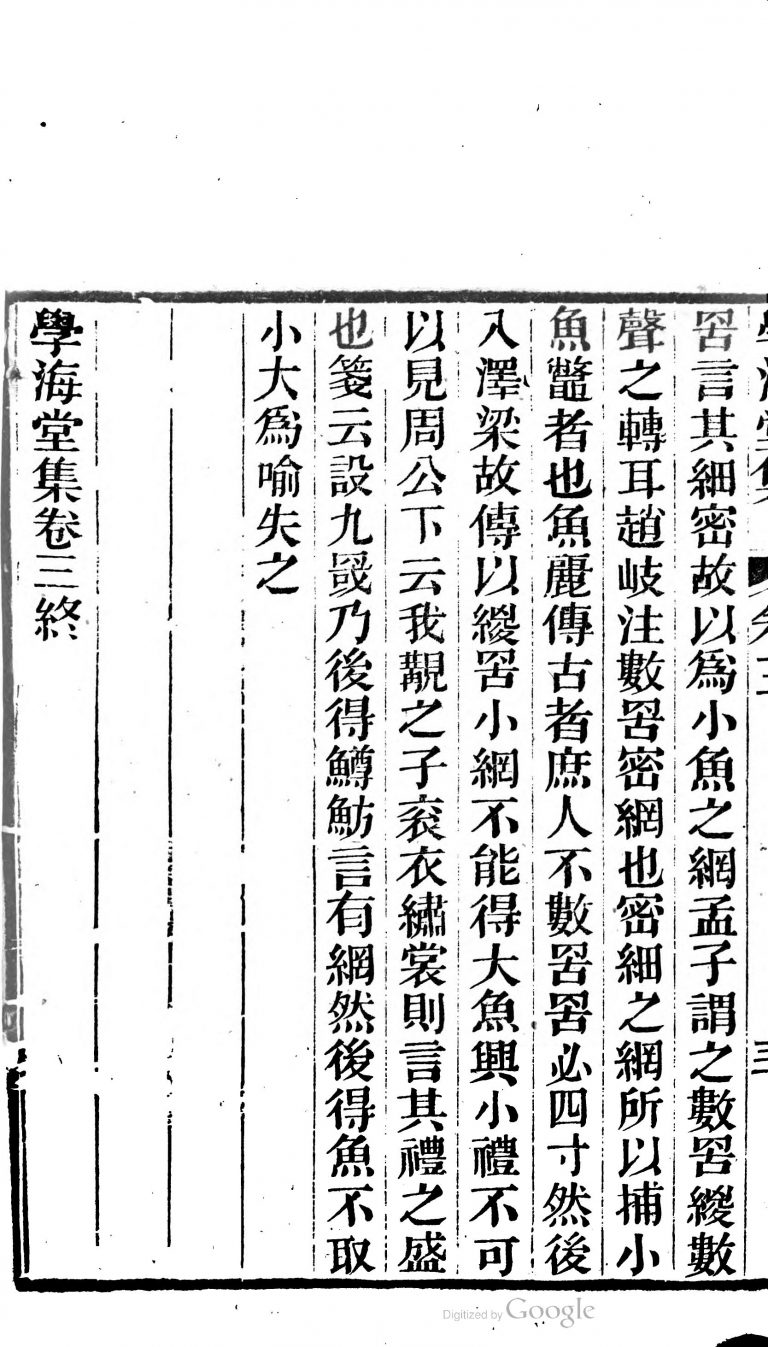 罟言其細密故以爲小魚之網孟子謂之數罟緵數
聲之轉耳趙岐注數罟密網也密細之網所以捕小
魚鼈者也魚麗傳古者庶人不數罟罟必四寸然後
入澤梁故傳以緵罟小網不能得大魚興小禮不可
以見周公下云我覯之子衮衣繡裳則言其禮之盛
也箋云設九罭乃後得鱒魴言有網然後得魚不取
小大爲喻失之
學海堂集卷三終
Digitized by Google